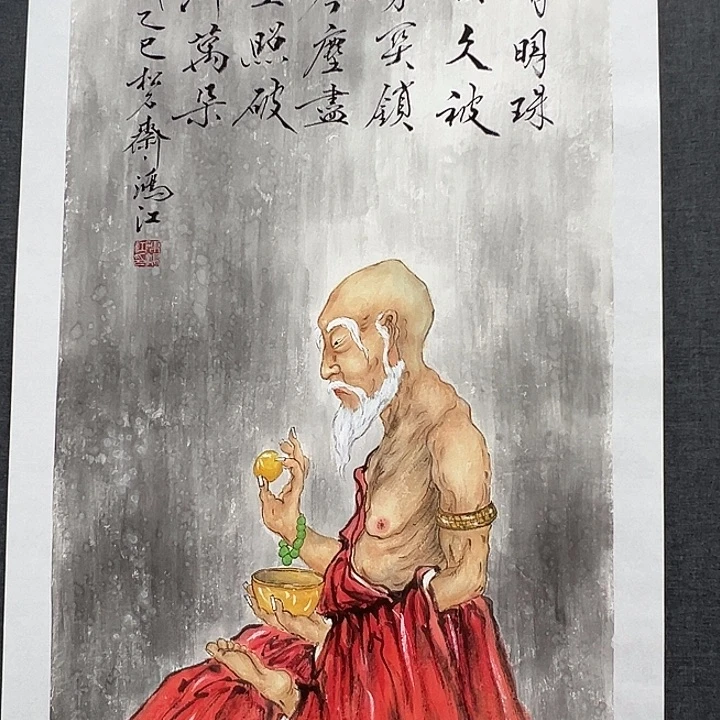 明珠
久被
関鎖
塵盡
照破
萬朵
乙巳松齋鴻江